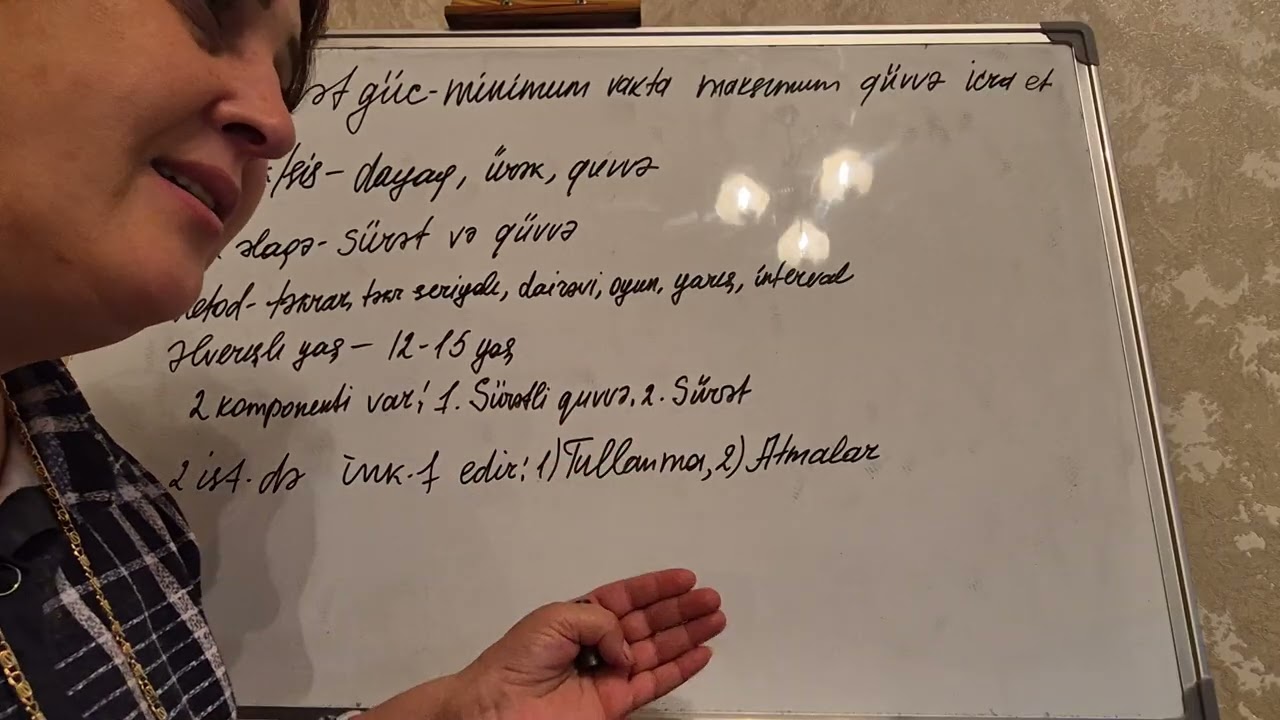 ət güc-minimum vaxta maksimum qüvvə icra et
/sis- dayaq, ürək, quvvə
əlaqə- Sürət və qüvvə
etod- təkrar, təkr seriyalı, dairəvi, oyun, yarış, interval
Əlverişli yaş - 12-15 yaş
2 komponenti var: 1. Sürətli quvvə. 2. Sürət
2 ist. də ink-f edir: 1) Tullanma, 2) Atmalar